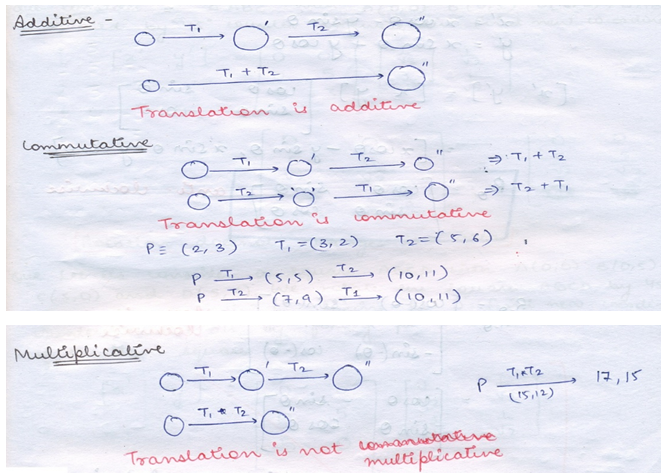 Additive -
T₁ ' T₂ "
T₁ + T₂ "
Translation is additive
Commutative
T₁ ' T₂ " ⇒ T₁ + T₂
T₂ ' T₁ " ⇒ T₂ + T₁
Translation is commutative
P ≡ (2, 3) T₁ = (3, 2) T₂ = (5, 6)
P T₁ → (5, 5) T₂ → (10, 11)
P T₂ → (7, 9) T1 → (10, 11)
Multiplicative
T₁ ' T₂ "
T₁ * T₂ "
P T₁*T₂ (15, 12) → 17, 15
Translation is not commutative
multiplicative